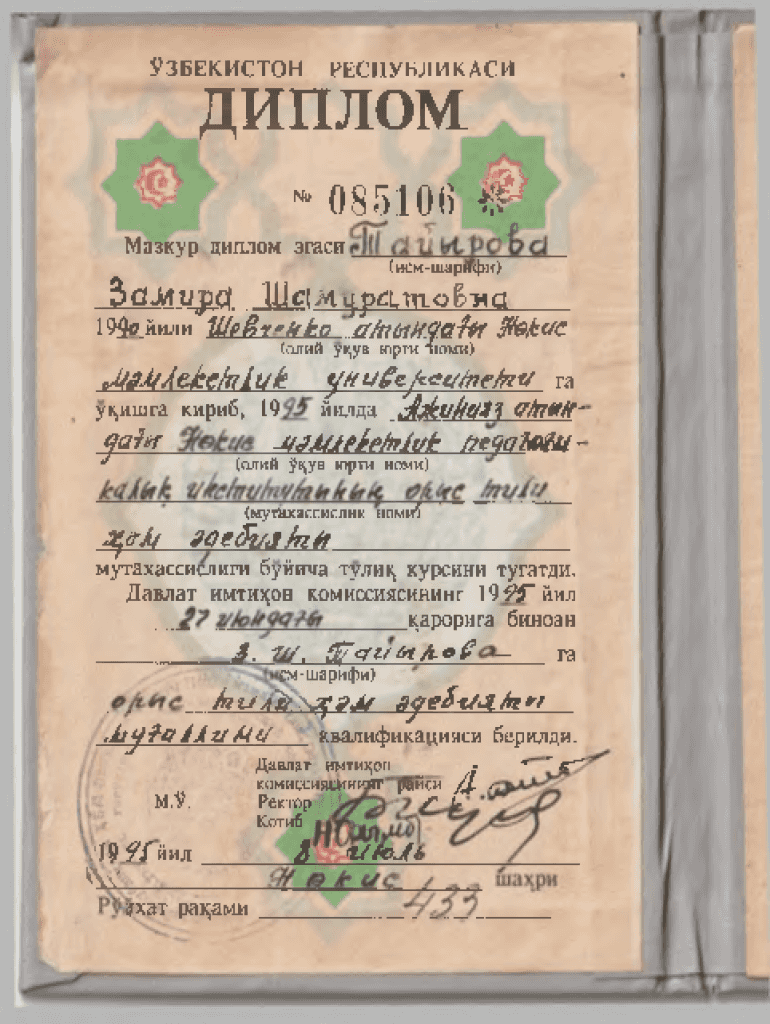 ЎЗБЕКИСТОН РЕСПУБЛИКАСИ
ДИПЛОМ
№ 085106
Мазкур диплом эгаси Тайырова
(исм-шарифи)
Замира Шамуратовна
1990 йили Шевченко атындағы Нөкис
(олий ўқув юрти номи)
мәмлекетлик университети га
ўқишга кириб, 1995 йилда Ажинияз атын-
дағы Нөкис мәмлекетлик педагоги-
(олий ўқув юрти номи)
калық институтының орыс тили
(мутахассислик номи)
ҳәм әдебияты
мутахассислиги бўйича тўлиқ курсини тугатди.
Давлат имтиҳон комиссиясининг 1995 йил
27 июндағы қарорига биноан
З. Ш. Тайырова га
(исм-шарифи)
орыс тили ҳәм әдебияты
муғаллими квалификацияси берилди.
Давлат имтиҳон
комиссиясининг райси
М.Ў. Ректор
Котиб
1995 йил 8 июль
Нөкис шаҳри
Рўйхат рақами 433